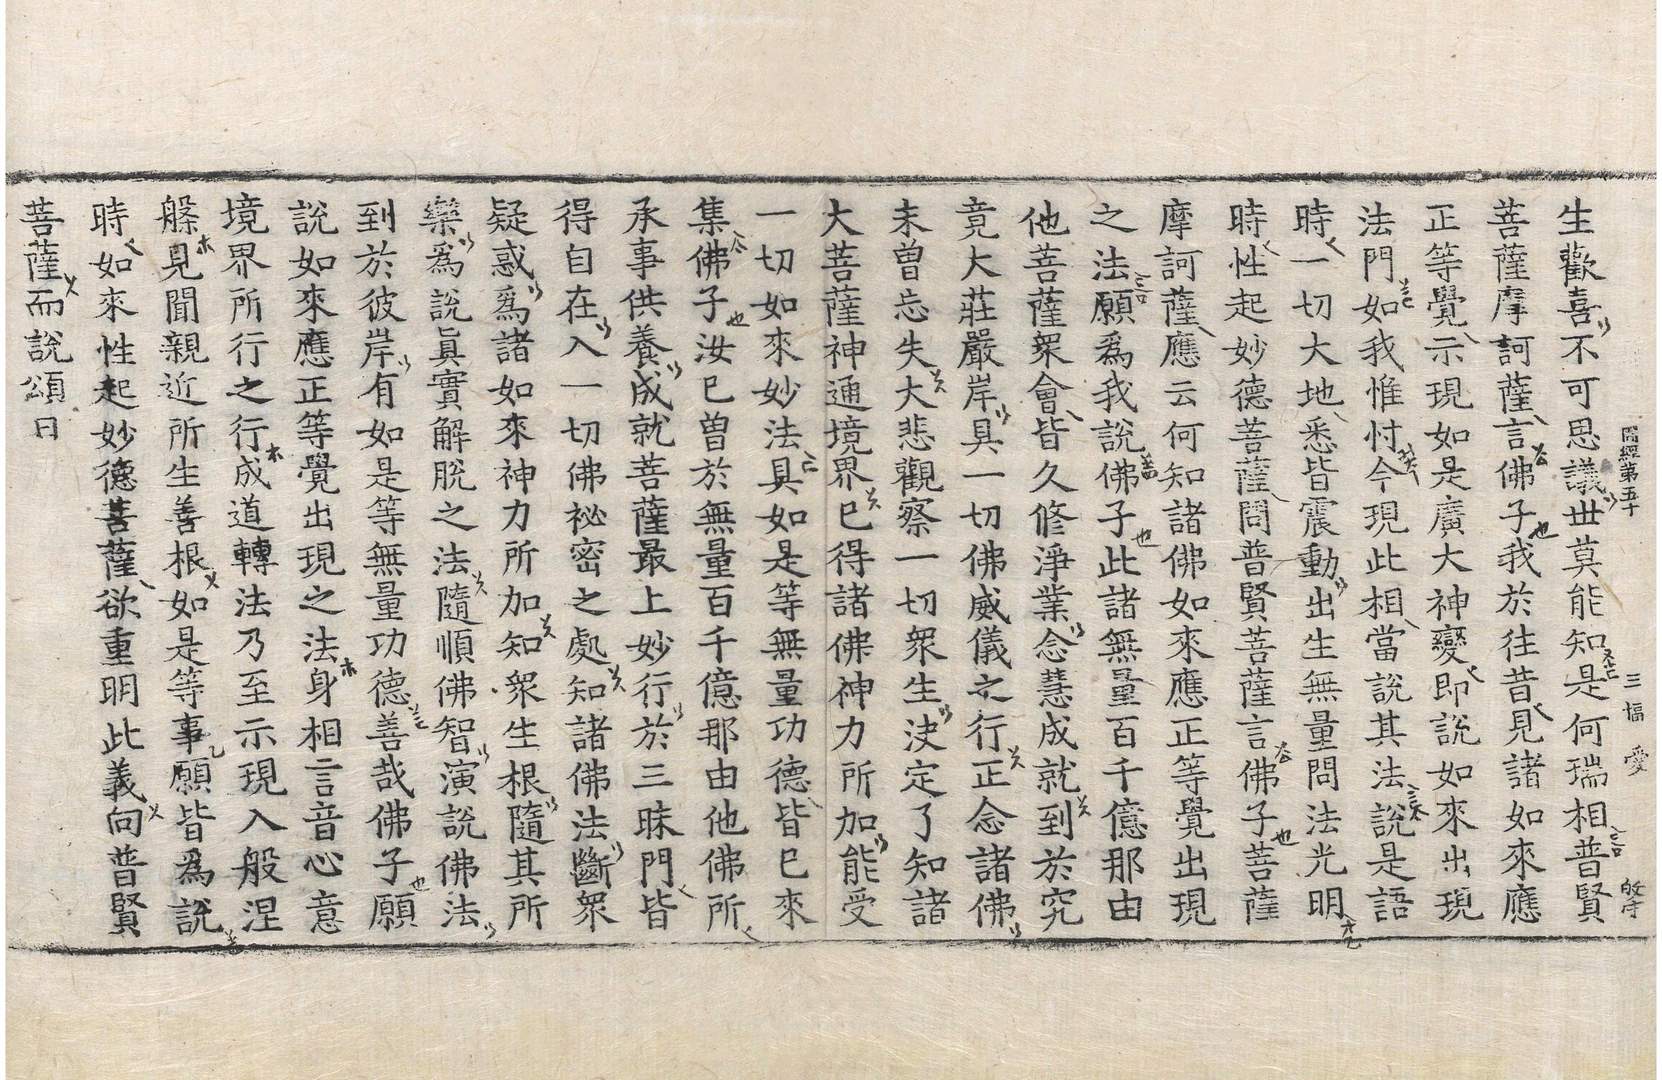 生歡喜不可思議世莫能知是何瑞相普賢
菩薩摩訶薩言佛子我於往昔見諸如來應
正等覺示現如是廣大神變即說如來出現
法門如我惟忖今現此相當說其法說是語
時一切大地悉皆震動出生無量問法光明
時性起妙德菩薩問普賢菩薩言佛子菩薩
摩訶薩應云何知諸佛如來應正等覺出現
之法願為我說佛子此諸無量百千億那由
他菩薩眾會皆久修淨業念慧成就到於究
竟大莊嚴岸具一切佛威儀之行正念諸佛
未曾忘失大悲觀察一切眾生決定了知諸
大菩薩神通境界已得諸佛神力所加能受
一切如來妙法具如是等無量功德皆已來
集佛子汝已曾於無量百千億那由他佛所
承事供養成就菩薩最上妙行於三昧門皆
得自在入一切佛祕密之處知諸佛法斷眾
疑惑為諸如來神力所加知眾生根隨其所
樂為說真實解脫之法隨順佛智演說佛法
到於彼岸有如是等無量功德善哉佛子願
說如來應正等覺出現之法身相言音心意
境界所行之行成道轉法乃至示現入般涅
槃見聞親近所生善根如是等事願皆為說
時如來性起妙德菩薩欲重明此義向普賢
菩薩而說頌曰